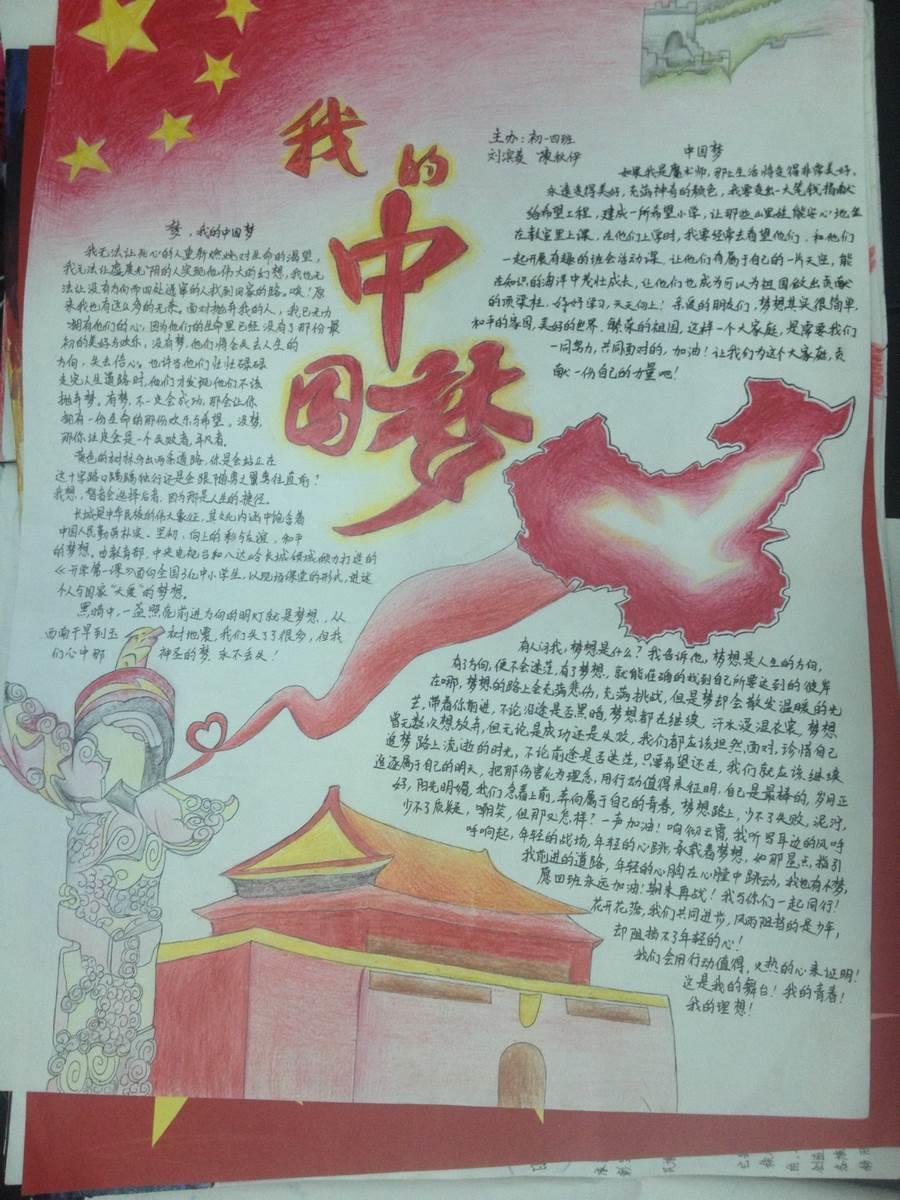 我的中国梦
主办：初一四班
刘滨菱 陈秋伊
中国梦
如果我是魔术师，那么生活将变得非常美好，
永远变得美好，充满神奇的颜色，我要变出一大笔钱捐献
给希望工程，建成一所希望小学，让那些山里娃能安心地坐
在教室里上课，在他们上学时，我要经常去看望他们，和他们
一起开展有趣的班会活动课，让他们有属于自己的一片天空，能
在知识的海洋中茁壮成长，让他们也成为可以为祖国做出贡献
的顶梁柱，好好学习，天天向上！亲爱的朋友们，梦想其实很简单，
和平的家园，美好的世界，繁荣的祖国，这样一个大家庭，是需要我们
一同努力，共同面对的，加油！让我们为这个大家庭，贡
献一份自己的力量吧！
梦，我的中国梦
我无法让死心的人重新燃烧对生命的渴望，
我无法让虚度光阴的人实现他伟大的幻想，我也无
法让没有方向而四处遥寄的人找到回家的路。唉！原
来我也有这么多的无奈。面对抛弃我的人，我已无力
拥有他们的心，因为他们的生命里已经没有了那份最
初的美好与欢乐，没有梦，他们将会失去人生的
方向，失去信心，也许当他们忙忙碌碌
走完人生道路时，他们才发现他们不该
抛弃梦。有梦，不一定会成功，那会让你
拥有一份生命的那份欢乐与希望。没梦，
那你注定会是一个失败者，平凡者。
黄色的树林分出两条道路，你是会站立在
这十字路口踽踽独行还是会跟随勇之翼勇往直前？
我想，智者会选择后者，因为那是人生的捷径。
长城是中华民族的伟大象征，其文化内涵中饱含着
中国人民勤劳朴实、坚韧、向上的 和平
的梦想。由教育部，中央电视台和八达岭长城领域倾力打造的
《开学第一课》面向全国3亿中小学生，以现场课堂的形式，讲述
个人与国家“大爱”的梦想。
黑暗中，一盏照亮前进方向的明灯就是梦想，从
西南干旱到玉树地震，我们失了了很多，但我
们心中那神圣的梦永不丢失！
有人问我，梦想是什么？我告诉他，梦想是人生的方向，
有了方向，便不会迷茫，有了梦想，就能准确的找到自己所要达到的彼岸
在哪，梦想的路上会充满悲伤，充满挑战，但是梦却会散发温暖的光
芒，带着你前进，不论沿途是否黑暗，梦想都在继续，汗水浸湿衣裳，梦想
曾无数次想放弃，但无论是成功还是失败，我们都应该坦然面对，珍惜自己
追梦路上流逝的时光，不论前途是否迷茫，只要希望还在，我们就应该继续
追逐属于自己的明天，把那伤害化为理念，用行动值得来证明，自己是最棒的，岁月正
好，阳光明媚，我们急着上前，奔向属于自己的青春，梦想路上，少不了失败，泥泞，
少不了质疑，嘲笑，但那又怎样？一声加油！响彻云霄，我听写耳边的风呼
呼响起，年轻的战场，年轻的心跳，承载着梦想，如那星点，指引
我前进的道路，年轻的心胸在心膛中跳动，我也有个梦，
愿四班永远加油！期末再战！我与你们一起同行！
花开花落，我们共同进步，风雨阻挡的是少年，
却阻挡不了年轻的心！
我们会用行动值得，火热的心来证明！
这是我的舞台！我的青春！
我的理想！